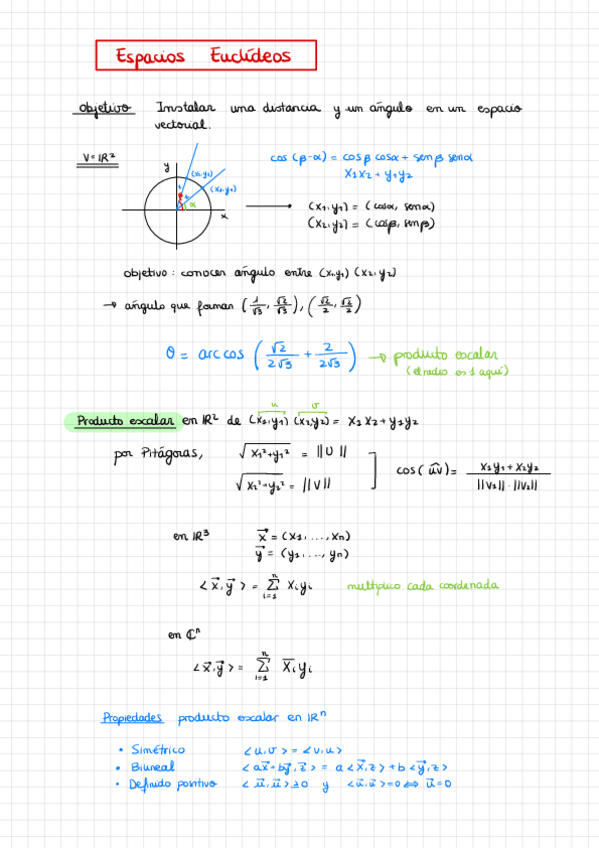 Espacios Euclídeos
Objetivo Instalar una distancia y un ángulo en un espacio
vectorial.
V = ℝ²
y
(x₁,y₁)
(x₂,y₂)
α
x
cos (β-α) = cosβ cosα + senβ senα
x₁x₂ + y₁y₂
(x₁,y₁) = (cosα, senα)
(x₂,y₂) = (cosβ, senβ)
objetivo: conocer ángulo entre (x₁,y₁) (x₂,y₂)
→ ángulo que forman (1/√3, √2/√3), (√2/2, √2/2)
θ = arccos (√2/2√3 + 2/2√3) → producto escalar
(el radio es 1 aquí)
u v
Producto escalar en ℝ² de (x₁,y₁) (x₂,y₂) = x₁x₂ + y₁y₂
por Pitágoras, √x₁²+y₁² = ||U||
√x₂²+y₂² = ||V||
cos(uv) = x₁y₁ + x₂y₂ / ||v₁|| · ||v₂||
en ℝ³ x⃗ = (x₁, ..., xₙ)
y⃗ = (y₁, ..., yₙ)
<x⃗,y⃗> = Σᵢ₌₁ⁿ xᵢyᵢ multiplico cada coordenada
en ℂⁿ
<x⃗,y⃗> = Σᵢ₌₁ⁿ x̅ᵢyᵢ
Propiedades producto escalar en ℝⁿ
• Simétrico <u,v> = <v,u>
• Bilineal <ax⃗+by⃗,z⃗> = a<x⃗,z> + b<y⃗,z>
• Definido positivo <u⃗,u⃗> ≥ 0 y <u⃗,u⃗> = 0 ⇔ u⃗ = 0